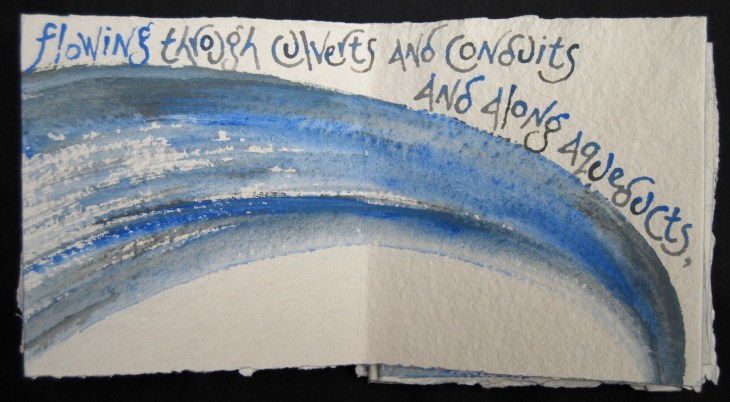 flowing through culverts and conduits
and along aqueducts,